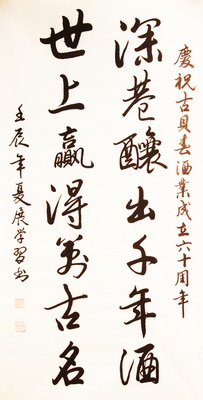 慶祝古貝春酒業成立六十周年
深巷釀出千年酒
世上贏得萬古名
壬辰年夏展学習書